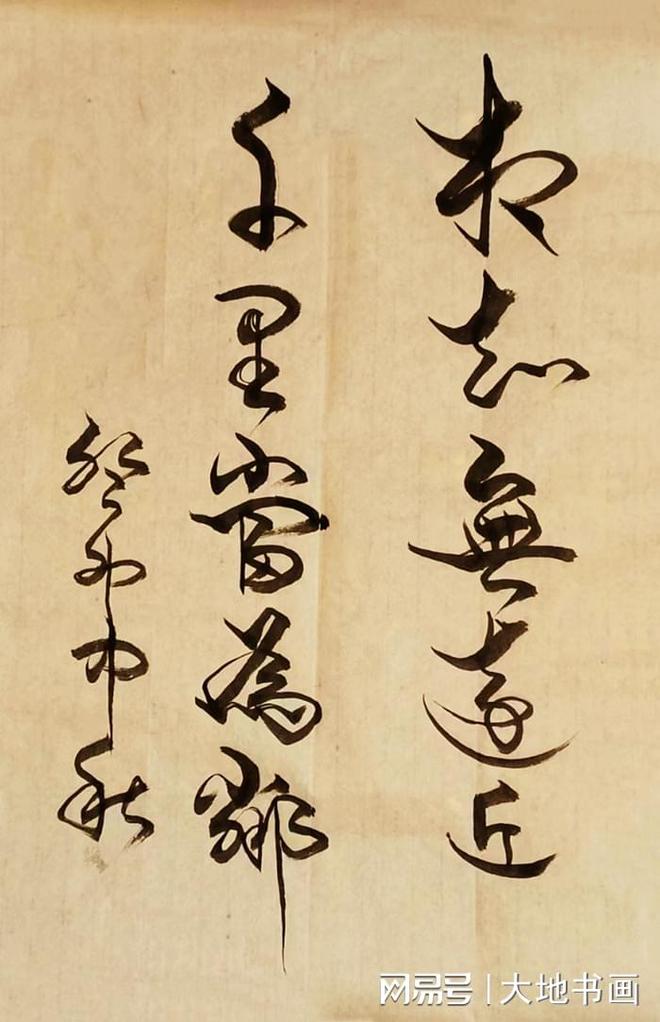 相知無遠近
千里當為鄰
癸卯中秋
网易号 | 大地书画